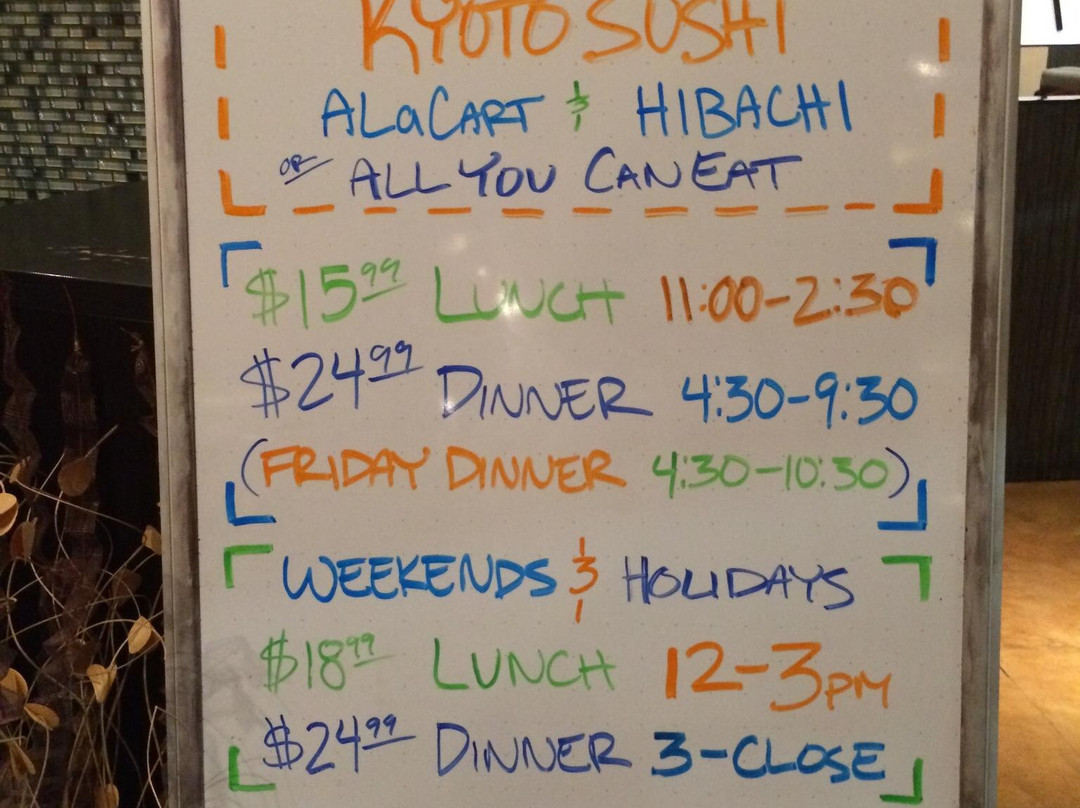 KYOTO SUSHI
ALaCART & HIBACHI
OR ALL YOU CAN EAT
$15.99 LUNCH 11:00-2:30
$24.99 DINNER 4:30-9:30
(FRIDAY DINNER 4:30-10:30)
WEEKENDS & HOLIDAYS
$18.99 LUNCH 12-3PM
$24.99 DINNER 3-CLOSE